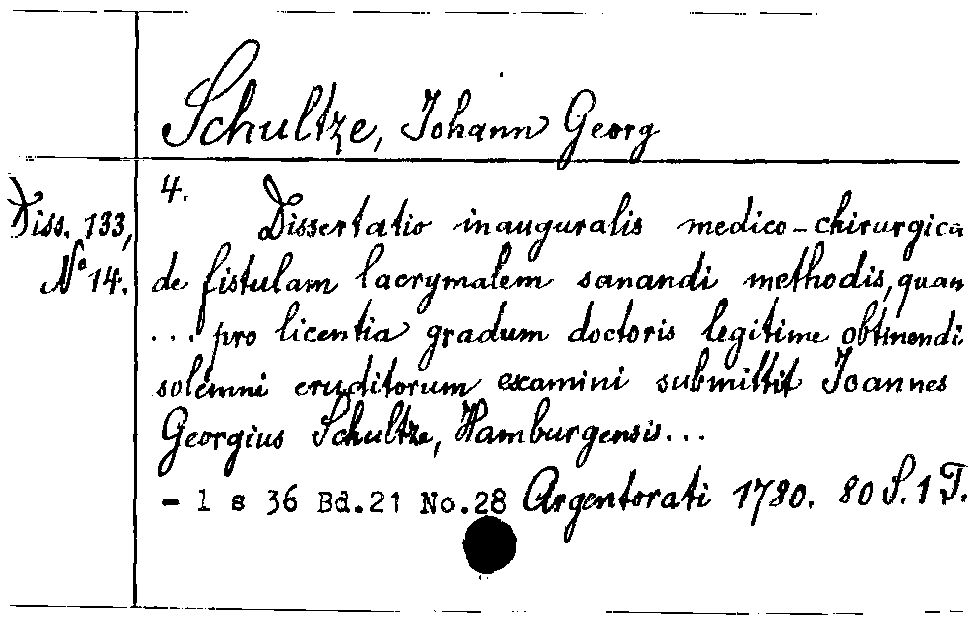 Schultze, Johann Georg
4.
Diss. 133,
No 14.
Dissertatio inauguralis medico-chirurgica
de fistulam lacrymalem sanandi methodis, quam
... pro licentia gradum doctoris legitime obtinendi
solemni eruditorum examini submittit Joannes
Georgius Schultze, Hamburgensis...
- 1 s 36 Bd.21 No.28 Argentorati 1780. 80 S. 1 T.